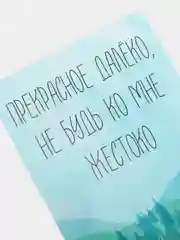 ПРЕКРАСНОЕ ДАЛЕКО,
НЕ БУДЬ КО МНЕ
ЖЕСТОКО